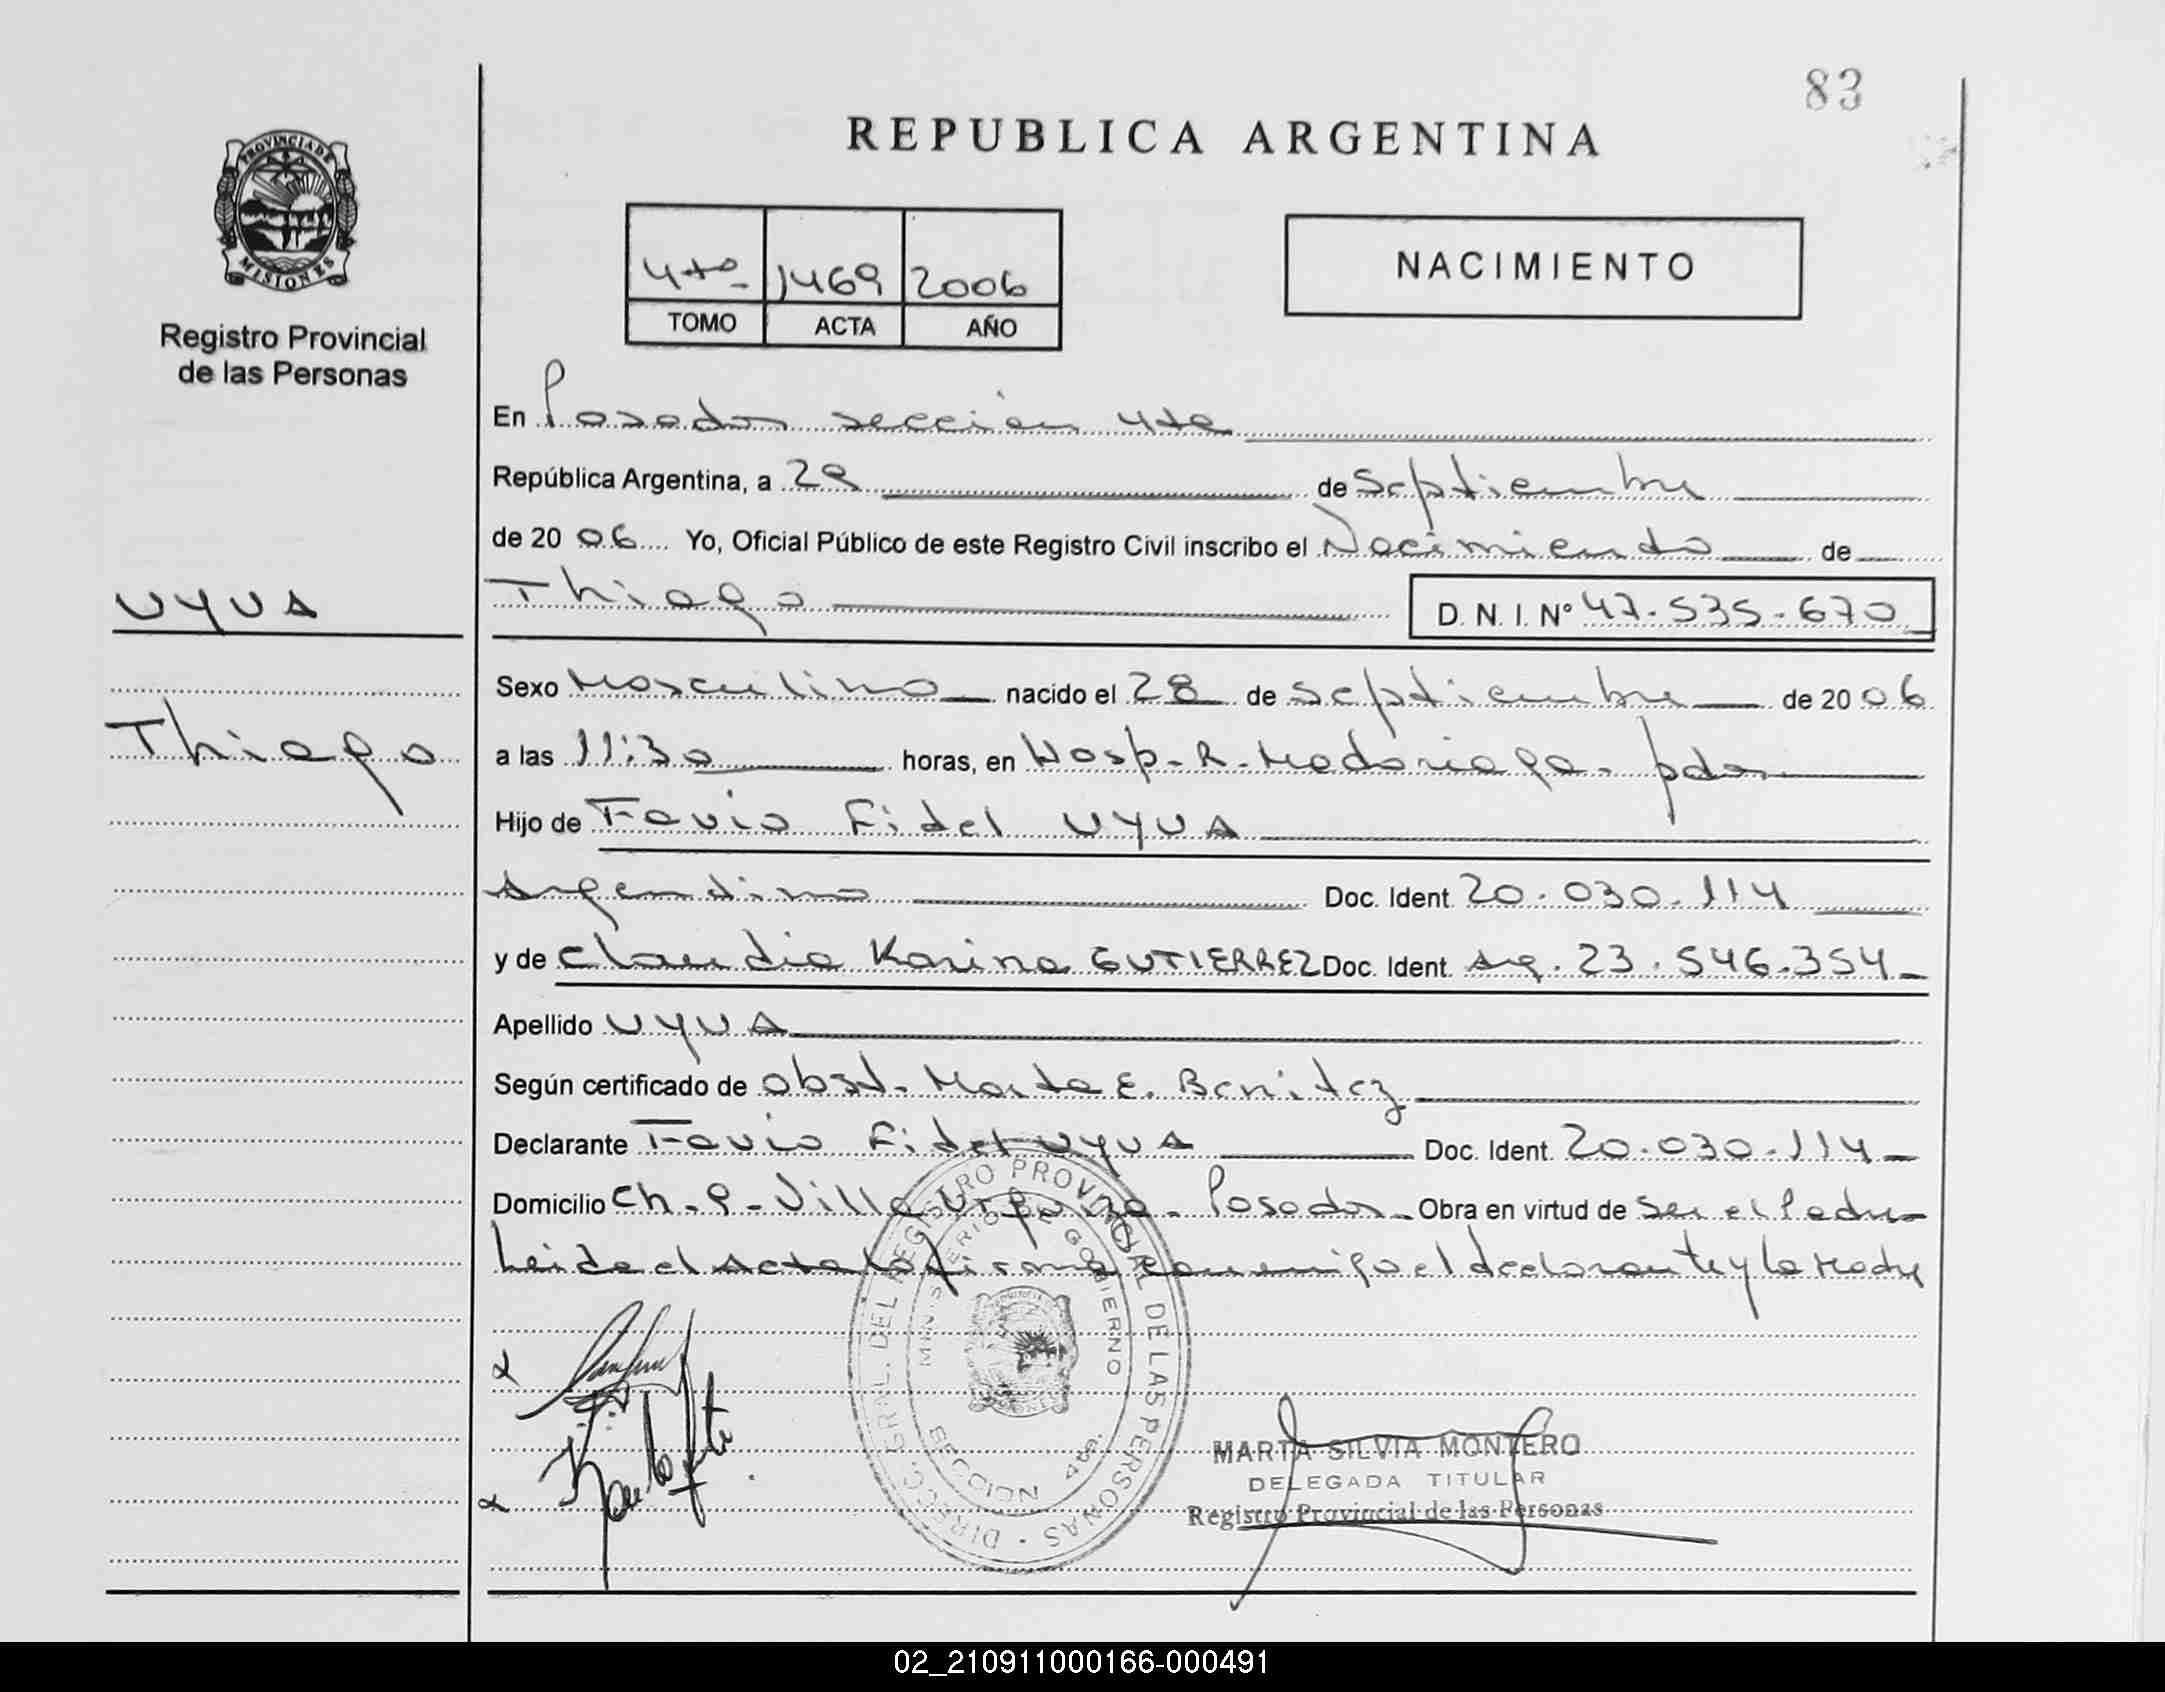 83
REPUBLICA ARGENTINA
PROVINCIA DE
MISIONES
Registro Provincial
de las Personas
4to 1469 2006
TOMO ACTA AÑO
NACIMIENTO
En Posadas sección 4ta
República Argentina, a 29 de Septiembre
de 20 06 Yo, Oficial Público de este Registro Civil inscribo el Nacimiento de
UYUA
Thiago D. N. I. Nº 47.535.670
Sexo Masculino nacido el 28 de Septiembre de 20 06
Thiago
a las 11:30 horas, en Hosp. R. Madariaga. pdas
Hijo de Favio Fidel UYUA
Argentino Doc. Ident. 20.030.114
y de Claudia Karina GUTIERREZ Doc. Ident. Arg. 23.546.354
Apellido UYUA
Según certificado de obst. Marta E. Benitez
Declarante Favio Fidel UYUA Doc. Ident. 20.030.114
Domicilio Ch. 9 - Villa Urquiza - Posadas Obra en virtud de ser el Padre
Leida el Acta la firma conmigo el declarante y la Madre
DIRECC. GRAL. DEL REGISTRO PROVINCIAL DE LAS PERSONAS
MINISTERIO DE GOBIERNO
SECCION 4ta.
MARTA SILVIA MONTERO
DELEGADA TITULAR
Registro Provincial de las Personas
02_210911000166-000491